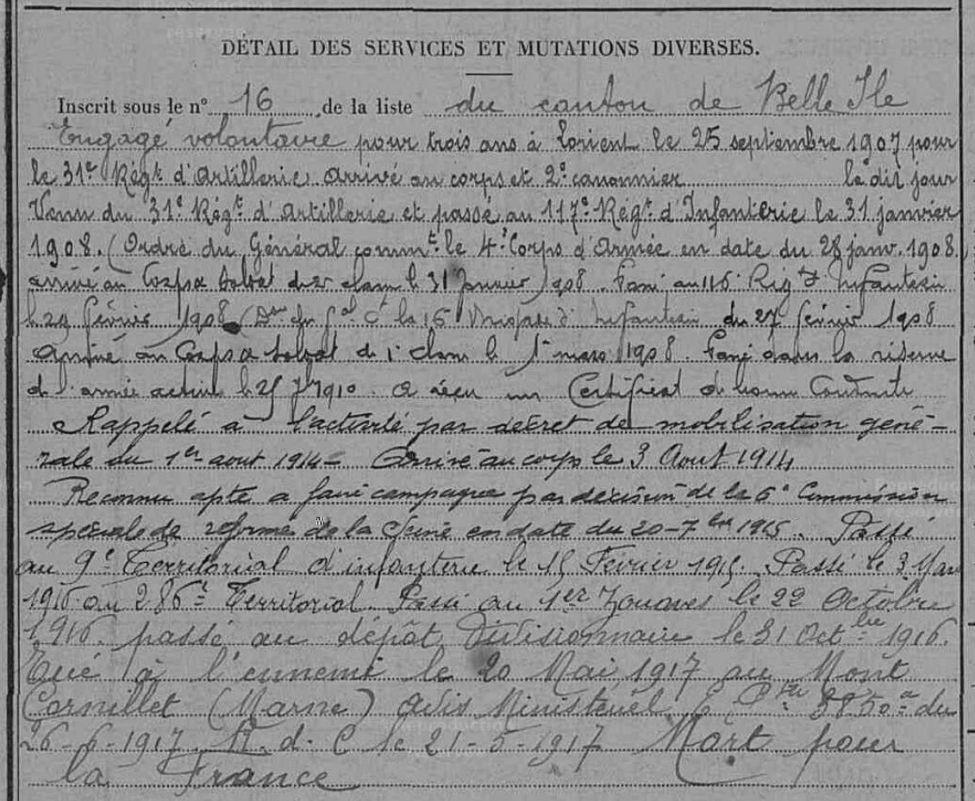 DÉTAIL DES SERVICES ET MUTATIONS DIVERSES.
Inscrit sous le n° 16 de la liste du canton de Belle Ile
Engagé volontaire pour trois ans à Lorient le 25 septembre 1907 pour
le 31e Régt d'Artillerie arrivé au corps et 2e canonnier le dit jour
Venu du 31e Régt d'Artillerie et passé au 117e Régt d'Infanterie le 31 janvier
1908. (Ordre du Général commt le 4e Corps d'Armée en date du 28 janv. 1908)
arrivé au Corps & soldat de 2e classe le 31 Janvier 1908. Passé au 116 Régt d'Infanterie
le 29 février 1908 (Don du Gal Ct la 16 Brigade d'Infanterie du 27 février 1908
Arrivé au Corps & soldat de 1e classe le 1er mars 1908. Passé dans la réserve
de l'armée active le 25 7bre 1910. a reçu un Certificat de bonne Conduite
Rappelé à l'activité par décret de mobilisation géné-
rale du 1er aout 1914 - Arrivé au corps le 3 Aout 1914
Reconnu apte a faire campagne par décision de la 6e Commission
spéciale de réforme de la Seine en date du 20-7bre 1915. Passé
au 9e Territorial d'infanterie le 15 Fevrier 1915. Passé le 3 Mars
1916 au 286e Territorial. Passé au 1er Zouaves le 22 Octobre
1916. passé au dépôt divisionnaire le 31 Octbre 1916.
Tué à l'ennemi le 20 Mai 1917 au Mont
Cornillet (Marne) Avis Ministériel 3850 du
26-6-1917. A. d. C le 21-5-1917 Mort pour
la France